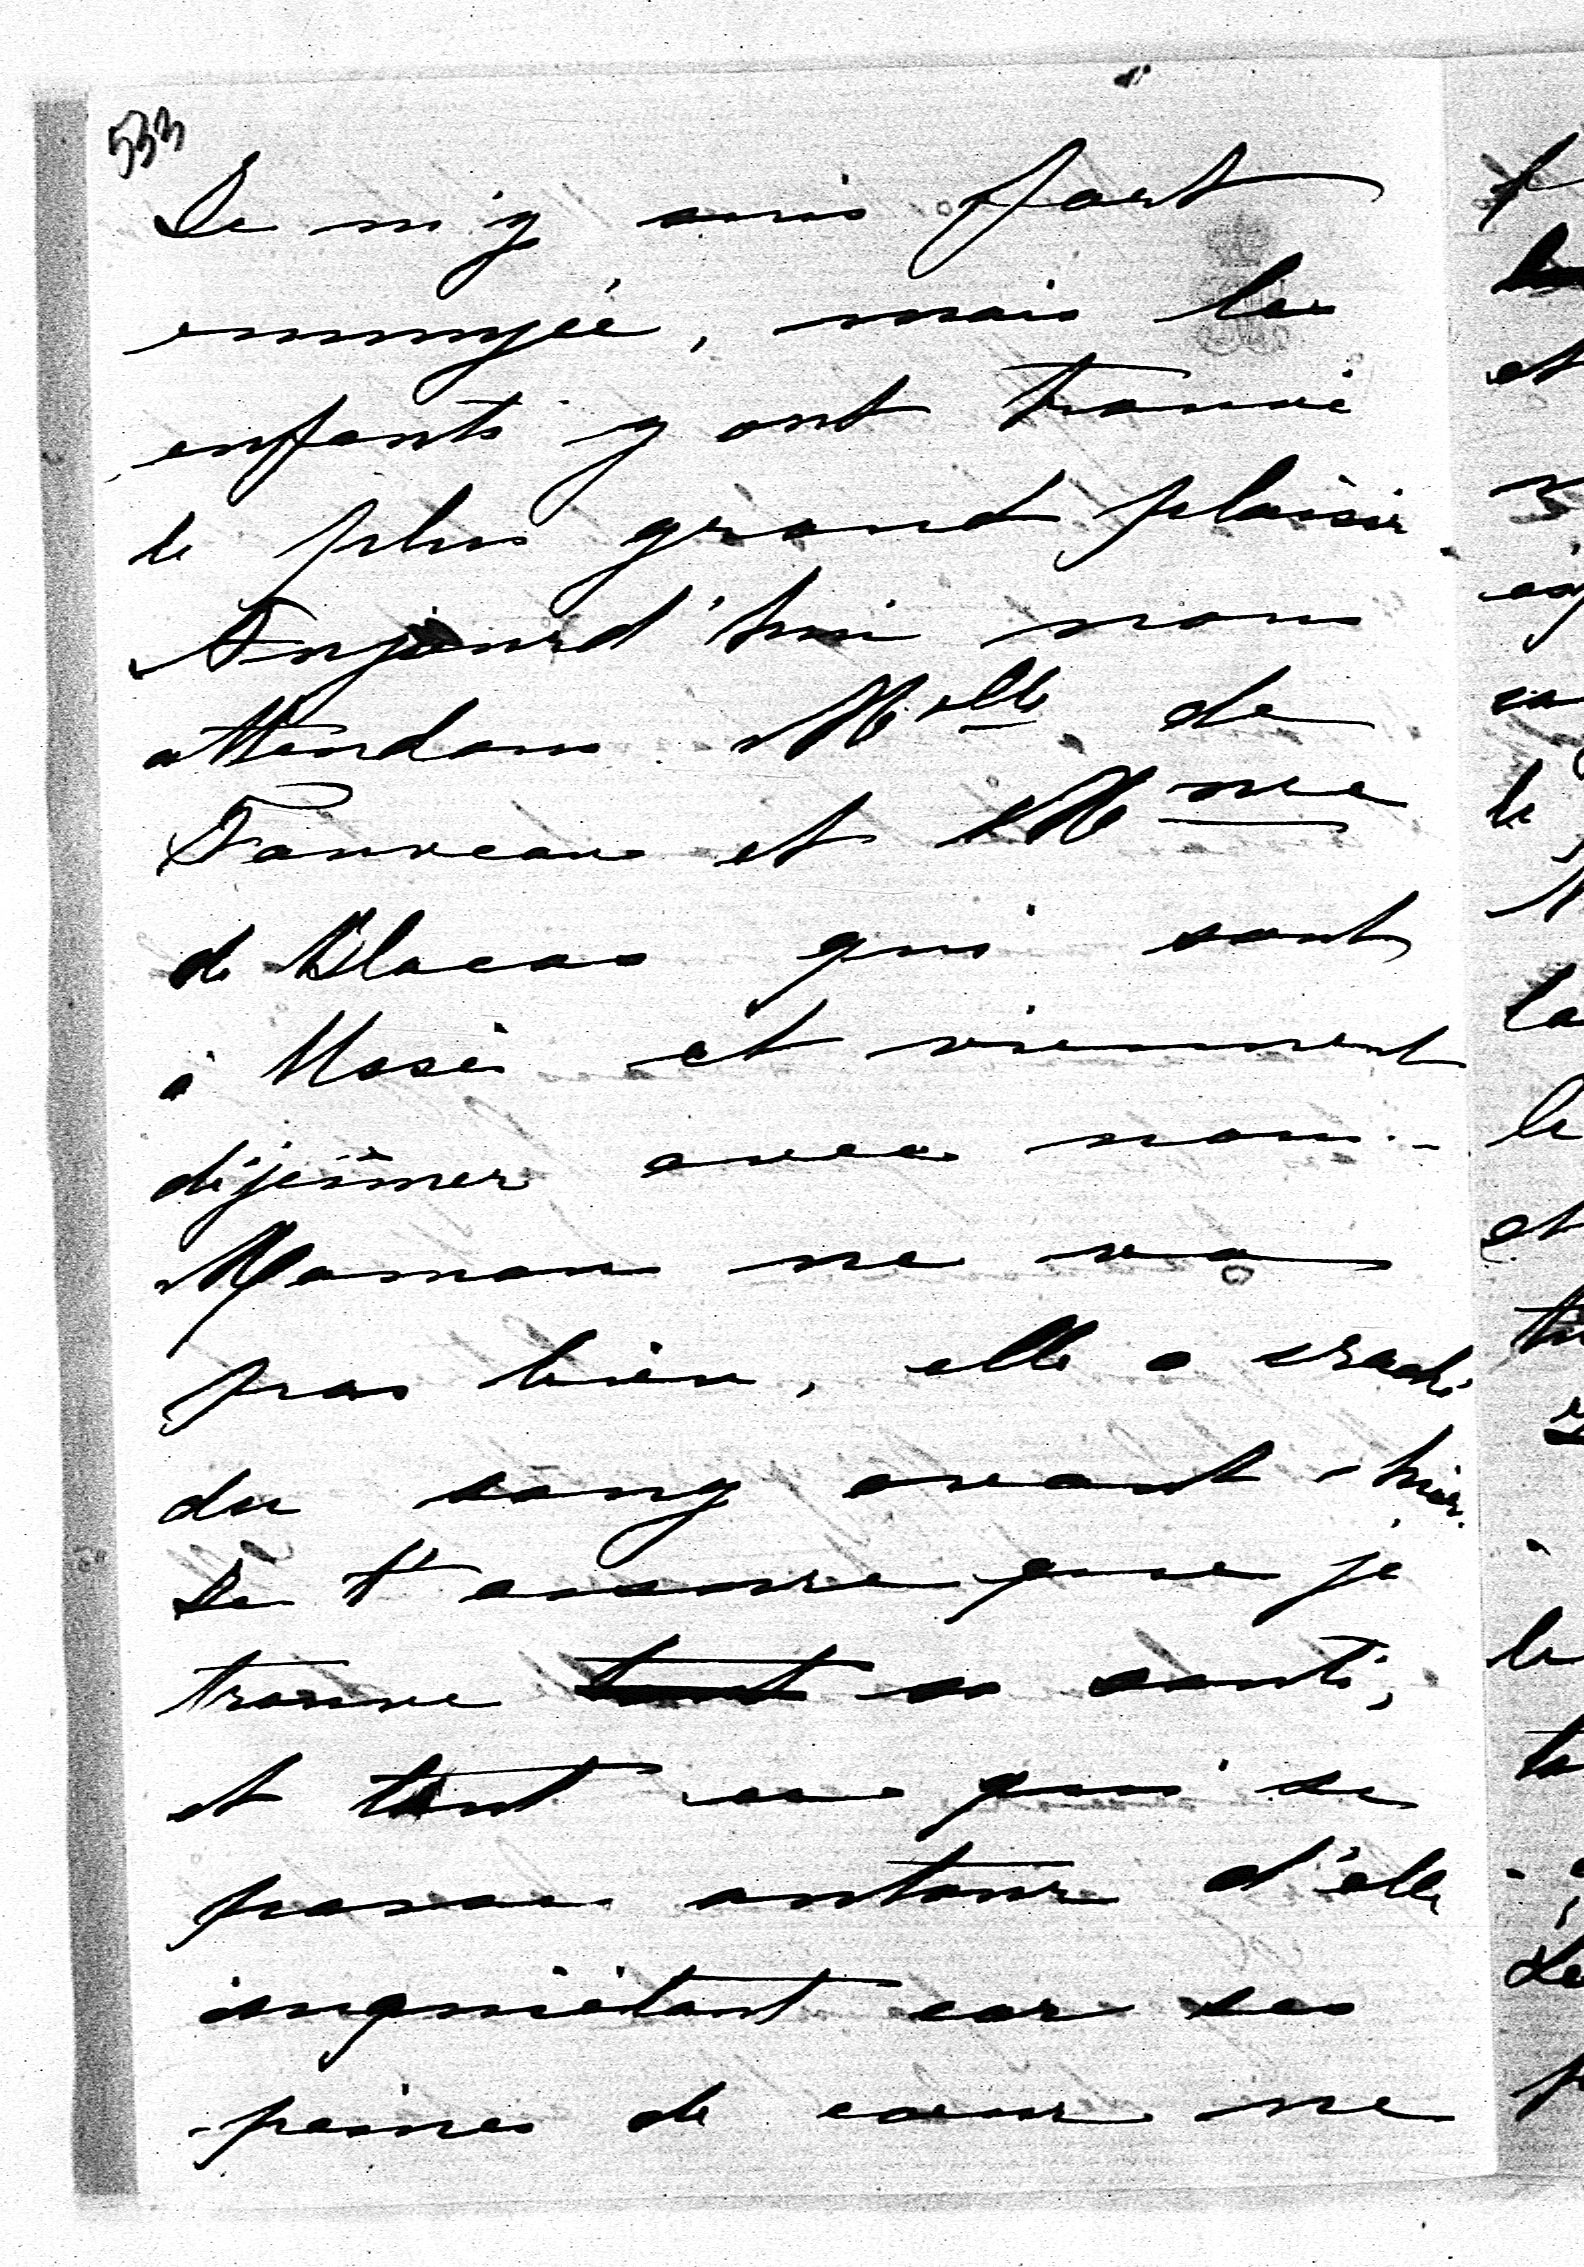 533
Je m'y suis fort
ennuyée, mais les
enfants y ont trouvé
le plus grand plaisir.
Aujourd'hui nous
attendons Melle de
et Mme
de Blacas qui sont
à Ussé et viennent
déjeûner avec nous -
Maman ne va
pas bien, elle a craché
du sang avant-hier.
Je t'assure que je
trouve tout sa santé,
et tout ce qui se
passe autour d'elle
inquiétant car ses
peines de coeur ne